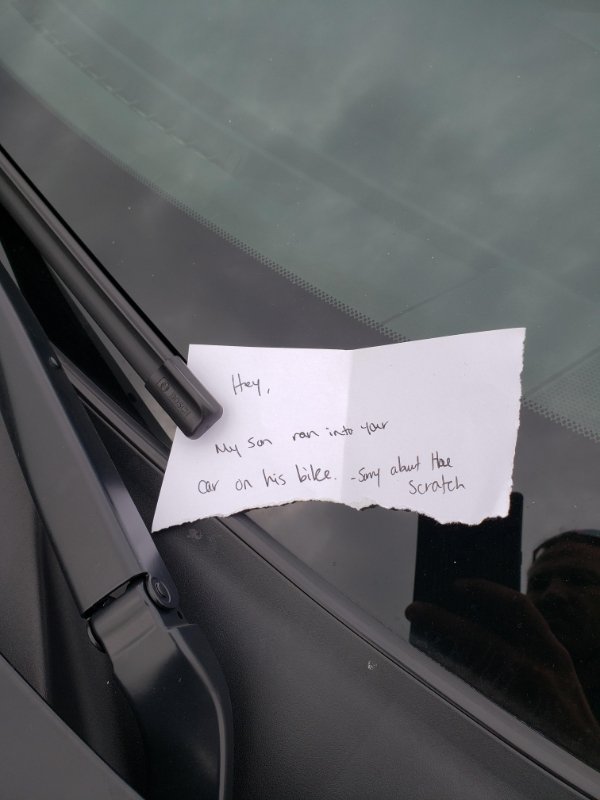 BOSCH
Hey,
My son ran into your
car on his bike. - Sorry about the
scratch